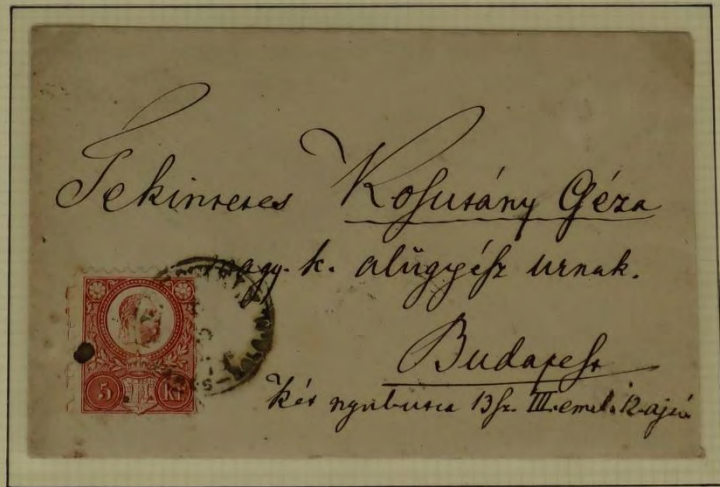 Tekintetes Kosutány Géza
nagy. k. alügyész urnak.
Budapest
Két nyúl utca 13 sz. III. emel. 12. ajtó
5 Kr